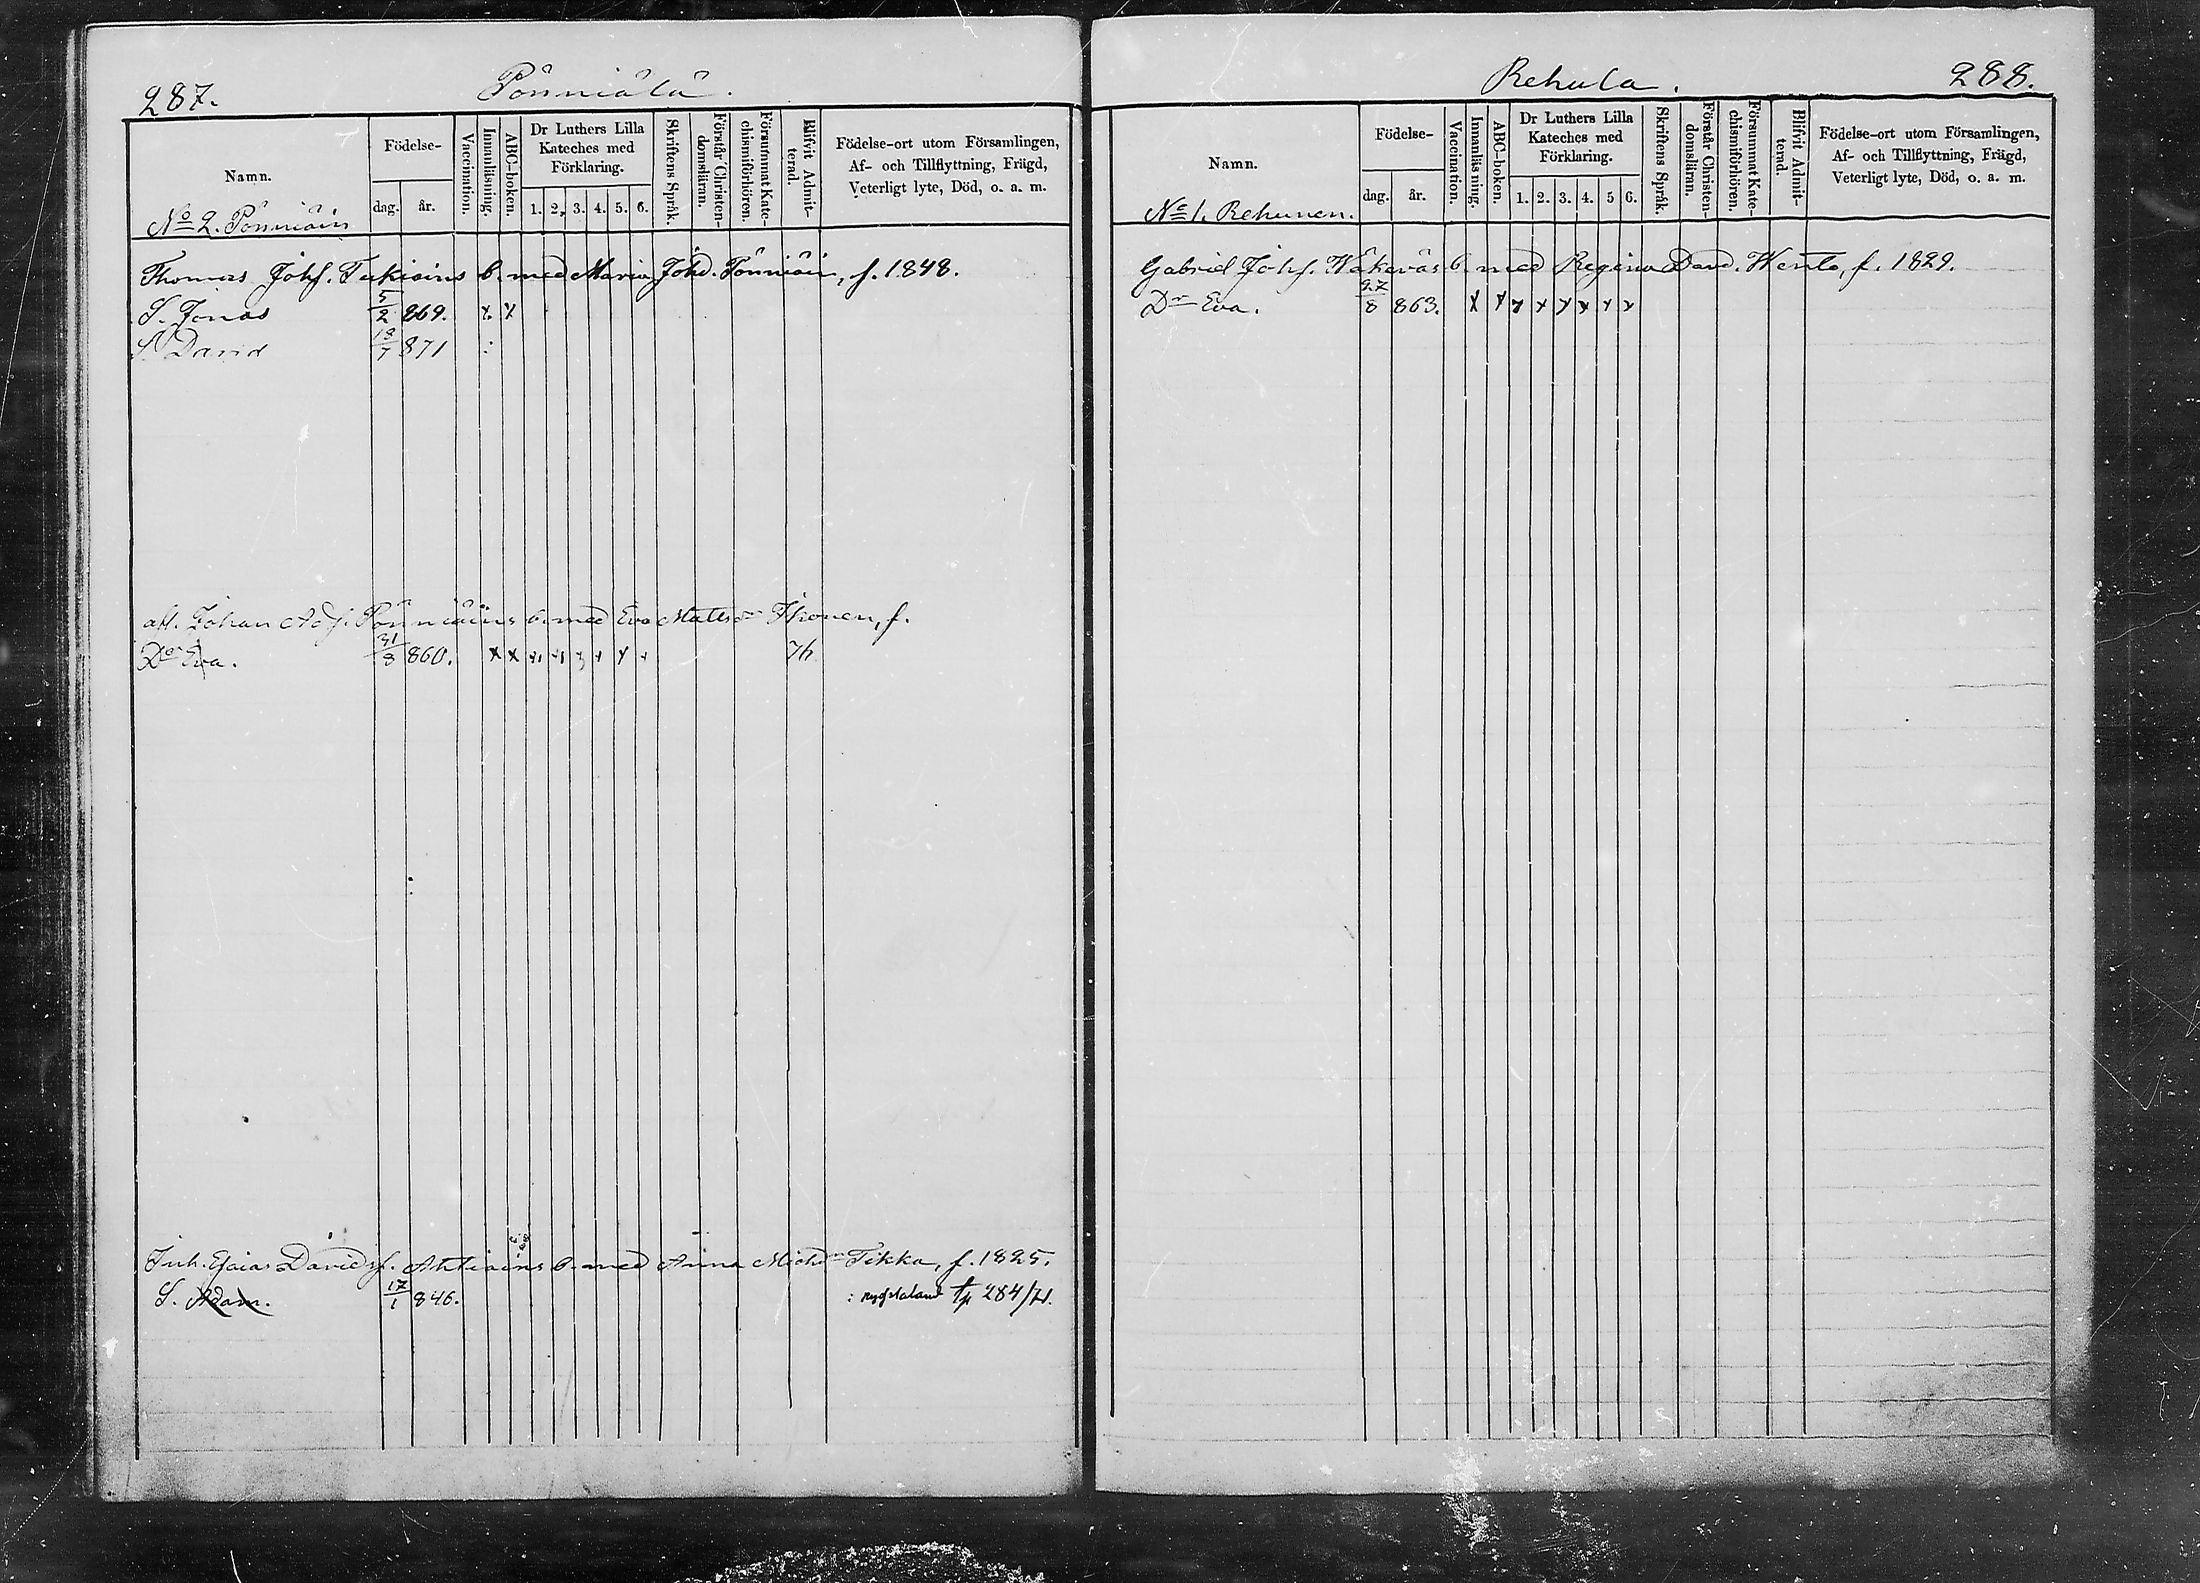 287.
Pönniälä.
Namn.
Födelse-
dag.
år.
Vaccination.
Innanläsning.
ABC-boken.
Dr Luthers Lilla
Kateches med
Förklaring.
1. 2. 3. 4. 5. 6.
Skriftens Språk.
Förstår Christen-
domsläran.
Försummat Kate-
chismiförhören.
Blifvit Admit-
terad.
Födelse-ort utom Församlingen,
Af- och Tillflyttning, Frägd,
Veterligt lyte, Död, o. a. m.
No 2. Pönniäin
Thomas Johs. b. med Maria Johd. Pönniäin, f. 1848.
S. Jonas 5/2 869. x x
S. David 18/7 871 :
afl. Johan Ads. Pönniäins b. med Eva Mattsdr Ihonen, f.
Dr Eva. 31/8 860. x x x x x x x x 76
Inh. Esaias Davids. Ahtiains b. med Anna Michdr Tikka, f. 1825.
S. Adam. 17/1 846. : 284/71.
Rehula.
288.
Namn.
Födelse-
dag.
år.
Vaccination.
Innanläsning.
ABC-boken.
Dr Luthers Lilla
Kateches med
Förklaring.
1. 2. 3. 4. 5 6.
Skriftens Språk.
Förstår Christen-
domsläran.
Försummat Kate-
chismiförhören.
Blifvit Admit-
terad.
Födelse-ort utom Församlingen,
Af- och Tillflyttning, Frägd,
Veterligt lyte, Död, o. a. m.
No 1. Rehunen.
Gabriel Johs. Wäkeväs b. med Regina Davd. Wento, f. 1829.
Dr Eva. 27/8 863. x x x x x x x x